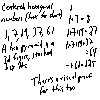 Centered hexagonal
numbers (hex for short)
1, 7, 19, 37, 61
A hex pyramid is a
3d figure, stacked
up like
1
1+7=8
1+7+19=27
1+7+19+37
=64
There's a visual proof
for this too